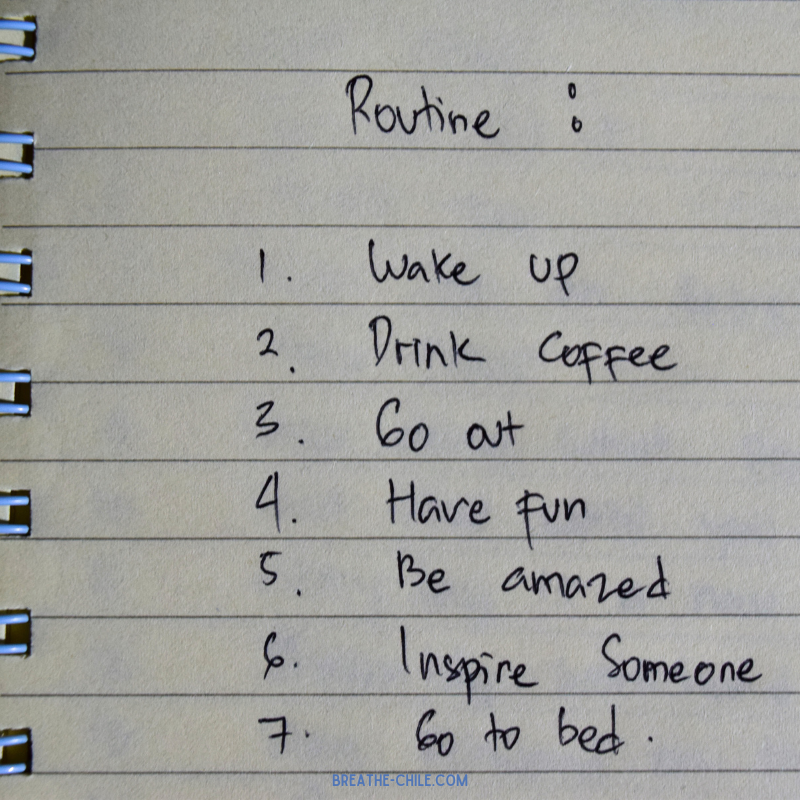 Routine :
1. Wake up
2. Drink Coffee
3. Go out
4. Have fun
5. Be amazed
6. Inspire Someone
7. Go to bed.
BREATHE-CHILE.COM